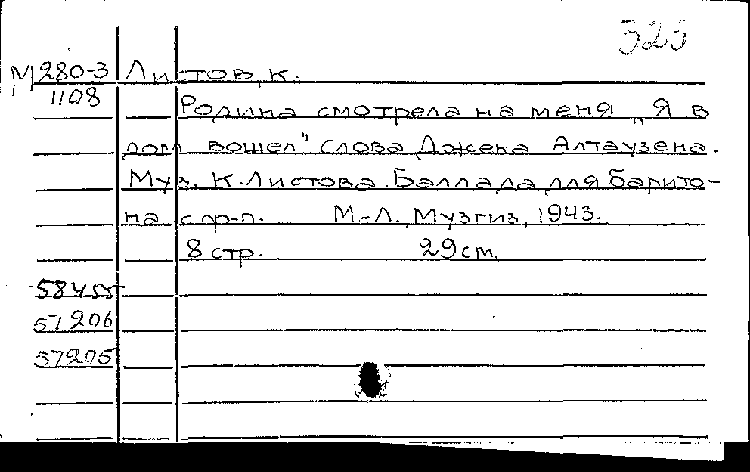 323
М 280-3 Листов, К.
1108
Родина смотрела на меня „Я в
дом вошел" слова Джека Алтаузена.
Муз. К. Листова. Баллада для барито-
на с ф-п. М.-Л. Музгиз, 1943.
8 стр. 29 см.
58455
57206
57205